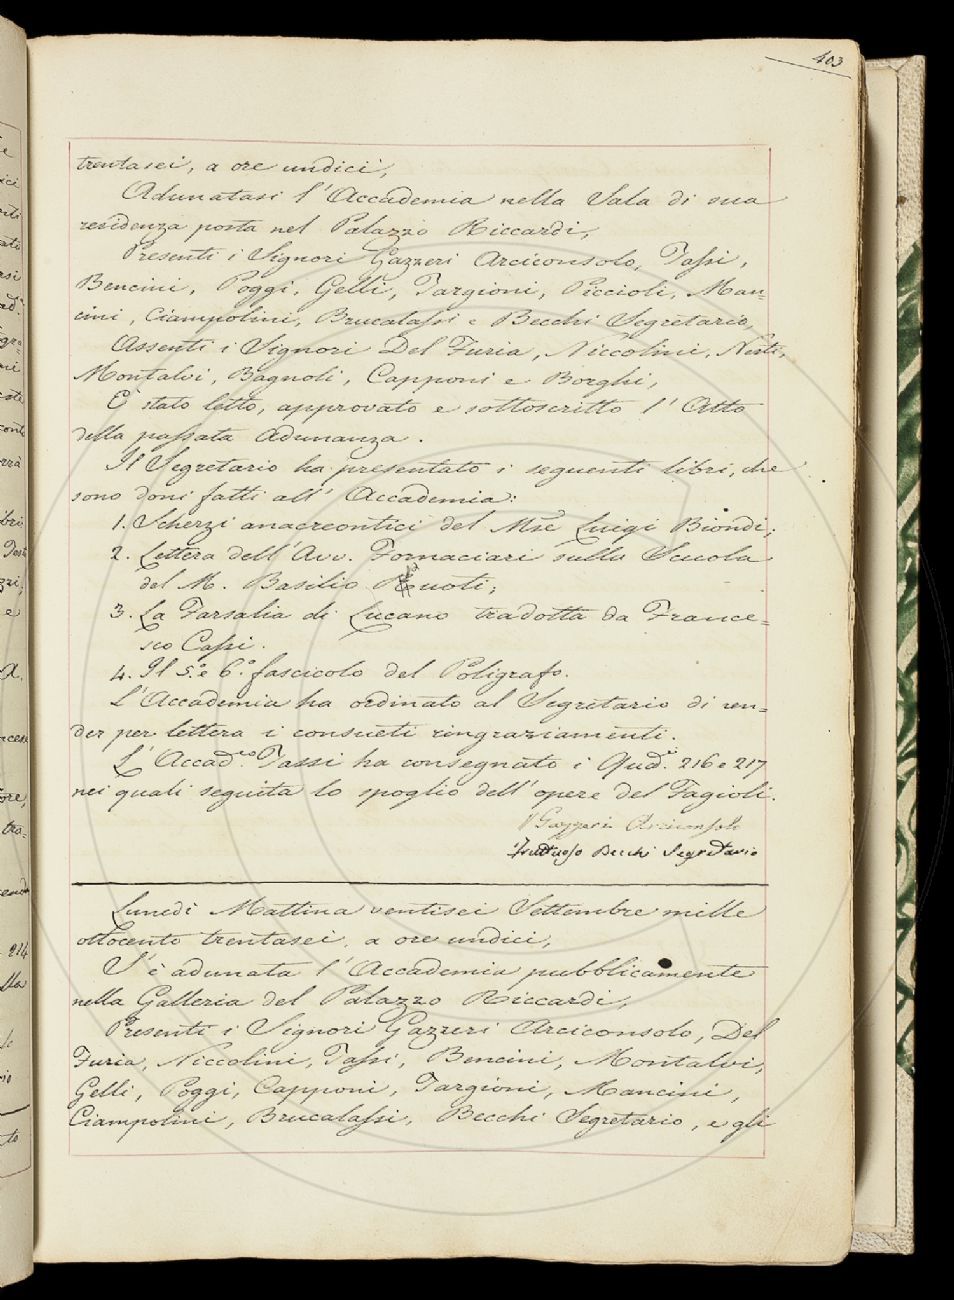 403
trentasei, a ore undici,
Adunatasi l'Accademia nella Sala di sua
residenza posta nel Palazzo Riccardi,
Presenti i Signori Gazzeri Arciconsolo, Tassi,
Bencini, Poggi, Gelli, Targioni, Piccioli, Man=
cini, Ciampolini, Brucalassi e Becchi Segretario,
Assenti i Signori Del Furia, Niccolini, Nesti,
Montalvi, Bagnoli, Capponi e Borghi,
È stato letto, approvato e sottoscritto l'Atto
della passata Adunanza.
Il Segretario ha presentato i seguenti libri, che
sono doni fatti all'Accademia:
1. Scherzi anacreontici del Mse Luigi Biondi;
2. Lettera dell'Avv. Fornaciari sulla Scuola
del M. Basilio Puoti;
3. La Farsalia di Lucano tradotta da France=
sco Cassi.
4. Il 5.° e 6.° fascicolo del Poligrafo.
L'Accademia ha ordinato al Segretario di ren=
der per lettera i consueti ringraziamenti.
L'Accad.co Tassi ha consegnato i Quad.i 216 e 217
nei quali seguita lo spoglio dell'opere del Fagioli.
Gazzeri Arciconsolo
Fruttuoso Becchi Segretario
Lunedì Mattina ventisei Settembre mille
ottocento trentasei, a ore undici,
S'è adunata l'Accademia pubblicamente
nella Galleria del Palazzo Riccardi,
Presenti i Signori Gazzeri Arciconsolo, Del
Furia, Niccolini, Tassi, Bencini, Montalvi,
Gelli, Poggi, Capponi, Targioni, Mancini,
Ciampolini, Brucalassi, Becchi Segretario, e gli